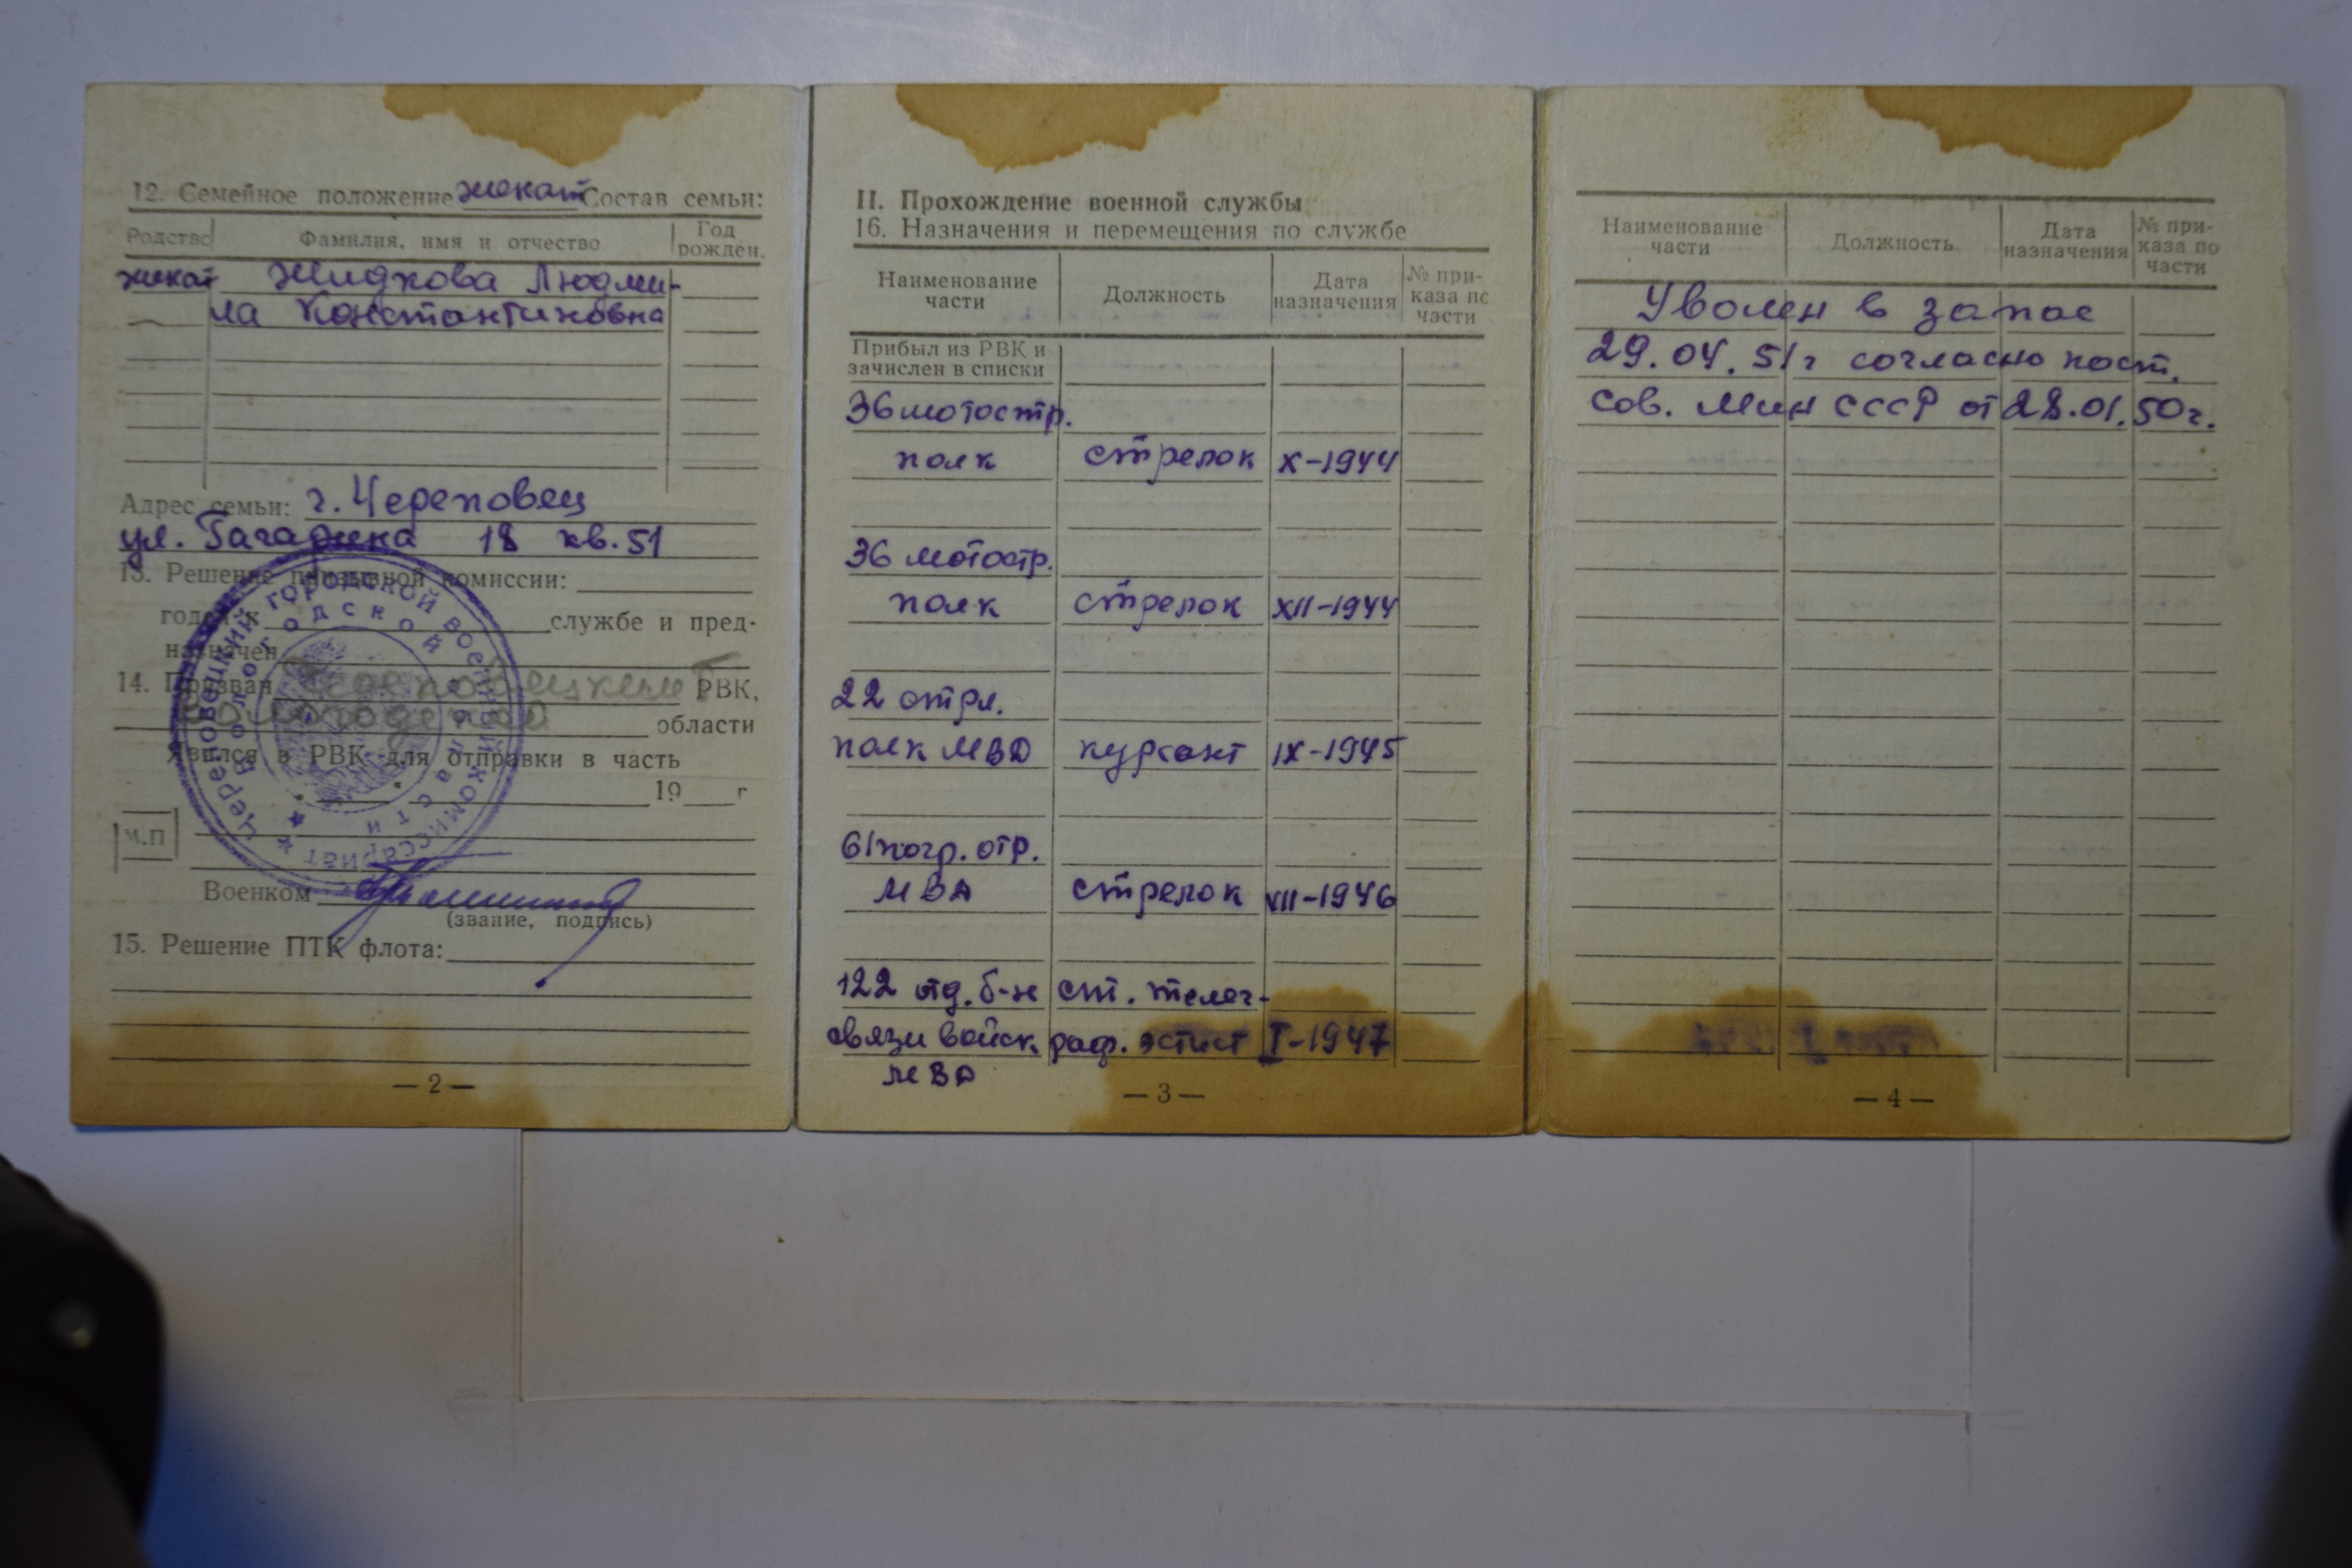 12. Семейное положение женат Состав семьи:
Родство Фамилия, имя и отчество Год рожден.
женат Жидкова Людми-
ла Константиновна
Адрес семьи: г. Череповец
ул. Гагарина 18 кв. 51
13. Решение призывной комиссии:
годен к службе и пред-
назначен
14. Призван Череповецким Г РВК,
Вологодской области
Явился в РВК для отправки в часть
19 г
М.П
Военком
(звание, подпись)
15. Решение ПТК флота:
— 2 —
Череповецкий городской военный комиссариат
Вологодской области
II. Прохождение военной службы
16. Назначения и перемещения по службе
Наименование части Должность Дата назначения № при-каза по части
Прибыл из РВК и
зачислен в списки
36 мотостр.
полк стрелок X-1944
36 мотостр.
полк стрелок XII-1944
22 стрл.
полк МВД курсант IX-1945
61 погр. отр.
МВД стрелок VII-1946
122 отд. б-н ст. телег-
связи войск раф. эстист I-1947
МВД
— 3 —
Наименование части Должность Дата назначения № при-каза по части
Уволен в запас
29.04.51г согласно пост.
Сов. Мин СССР от 28.01.50г.
— 4 —